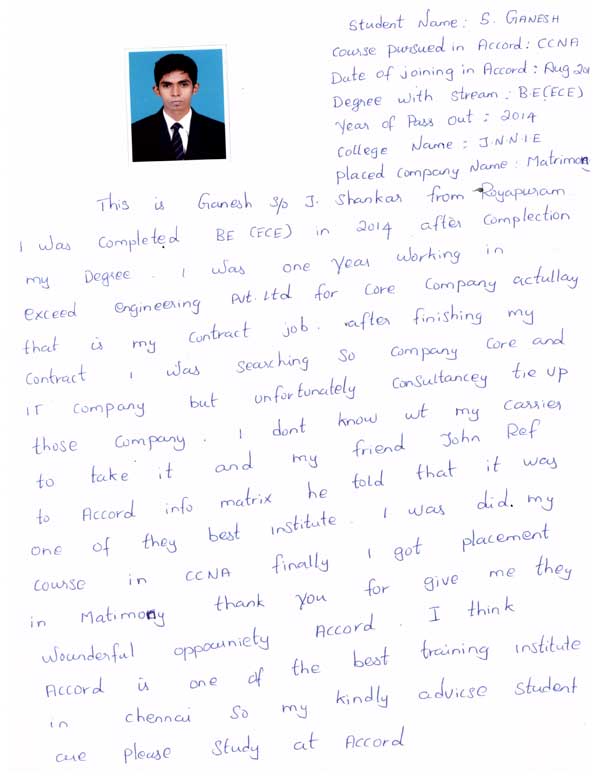 Student Name : S. GANESH
Course pursued in Accord : CCNA
Date of joining in Accord : Aug 201
Degree with Stream : B.E(ECE)
Year of Pass out : 2014
College Name : J.N.N.I.E
Placed Company Name : Matrimon
This is Ganesh S/o J. Shankar from Royapuram
I was completed BE (ECE) in 2014 after complection
my Degree. I was one year working in
exceed engineering pvt. Ltd for core company actullay
that is my contract job. after finishing my
contract I was searching so company core and
IT company but unfortunately consultancey tie up
those company. I dont know wt my carrier
to take it and my friend John Ref
to Accord info matrix he told that it was
one of they best institute. I was did. my
course in CCNA finally I got placement
in Matimony thank you for give me they
wounderful oppouniety Accord. I think
Accord is one of the best training institute
in chennai so my kindly advicse student
are please study at Accord